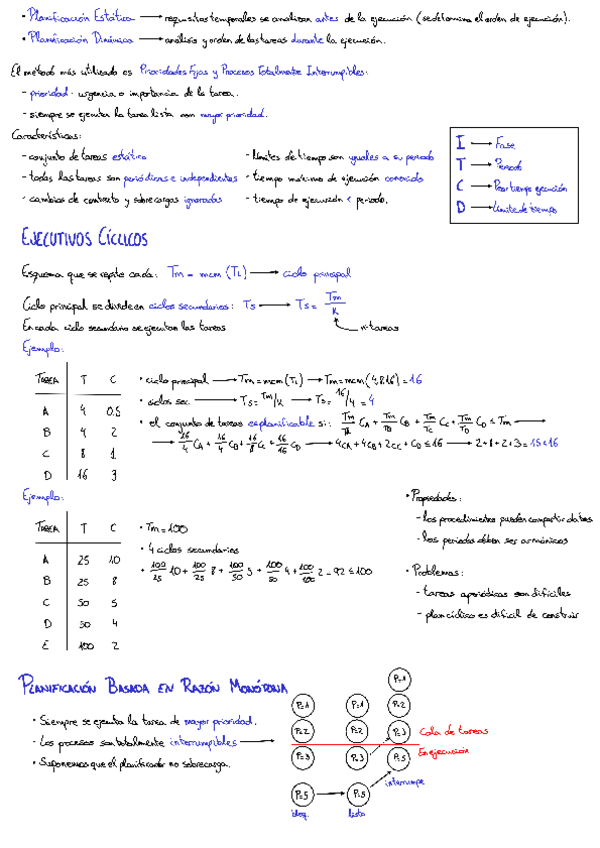 • Planificación Estática → requisitos temporales se analizan antes de la ejecución (se determina el orden de ejecución).
• Planificación Dinámica → análisis y orden de las tareas durante la ejecución.
El método más utilizado es Prioridades Fijas y Procesos Totalmente Interrumpibles:
- prioridad: urgencia o importancia de la tarea.
- siempre se ejecuta la tarea lista con mayor prioridad.
Características:
- conjunto de tareas estático
- todas las tareas son periódicas e independientes
- cambios de contexto y sobrecargas ignorados
- límites de tiempo son iguales a su periodo
- tiempo máximo de ejecución conocido
- tiempo de ejecución < periodo.
I → Fase
T → Periodo
C → Peor tiempo ejecución
D → Límite de tiempo
EJECUTIVOS CÍCLICOS
Esquema que se repite cada: Tm = mcm (Ti) → ciclo principal
Ciclo principal se divide en ciclos secundarios: Ts → Ts = Tm/k
En cada ciclo secundario se ejecutan las tareas
nº tareas
Ejemplo:
TAREA T C
A 4 0.5
B 4 2
C 8 1
D 16 3
• ciclo principal → Tm = mcm (Ti) → Tm = mcm (4,8,16) = 16
• ciclos sec. → Ts = Tm/k → Ts = 16/4 = 4
• el conjunto de tareas es planificable si: Tm/TA CA + Tm/TB CB + Tm/TC CC + Tm/TD CD ≤ Tm →
→ 16/4 CA + 16/4 CB + 16/8 CC + 16/16 CD → 4CA + 4CB + 2CC + CD ≤ 16 → 2+8+2+3 = 15 ≤ 16
Ejemplo:
TAREA T C
A 25 10
B 25 8
C 50 5
D 50 4
E 100 2
• Tm = 100
• 4 ciclos secundarios
• 100/25 10 + 100/25 8 + 100/50 5 + 100/50 4 + 100/100 2 = 92 ≤ 100
• Propiedades:
- los procedimientos pueden compartir datos
- los periodos deben ser armónicos
• Problemas:
- tareas aperiódicas son difíciles
- plan cíclico es difícil de construir
PLANIFICACIÓN BASADA EN RAZÓN MONÓTONA
• Siempre se ejecuta la tarea de mayor prioridad.
• Los procesos son totalmente interrumpibles →
• Suponemos que el planificador no sobrecarga.
P=1
P=1 P=1 P=2
P=2 P=2 P=3 Cola de tareas
P=3 P=3 P=5 En ejecución
P=5 P=5 interrumpe
bloq. lista